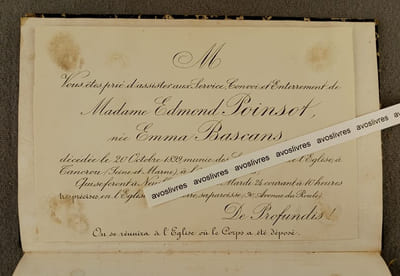 M
Vous êtes prié d'assister aux Service, Convoi et Enterrement de
Madame Edmond Poinsot,
née Emma Bascans
décédée le 20 Octobre 1899 munie des l'Eglise, à
Tancrou (Seine et Marne), à l
Qui se feront à Mardi 24 courant à 10 heures
en l'Eglise sa paroisse,
De Profundis!
On se réunira à l'Eglise où le Corps a été déposé.
avoslivres avoslivres avoslivres avoslivres avoslivres avoslivres